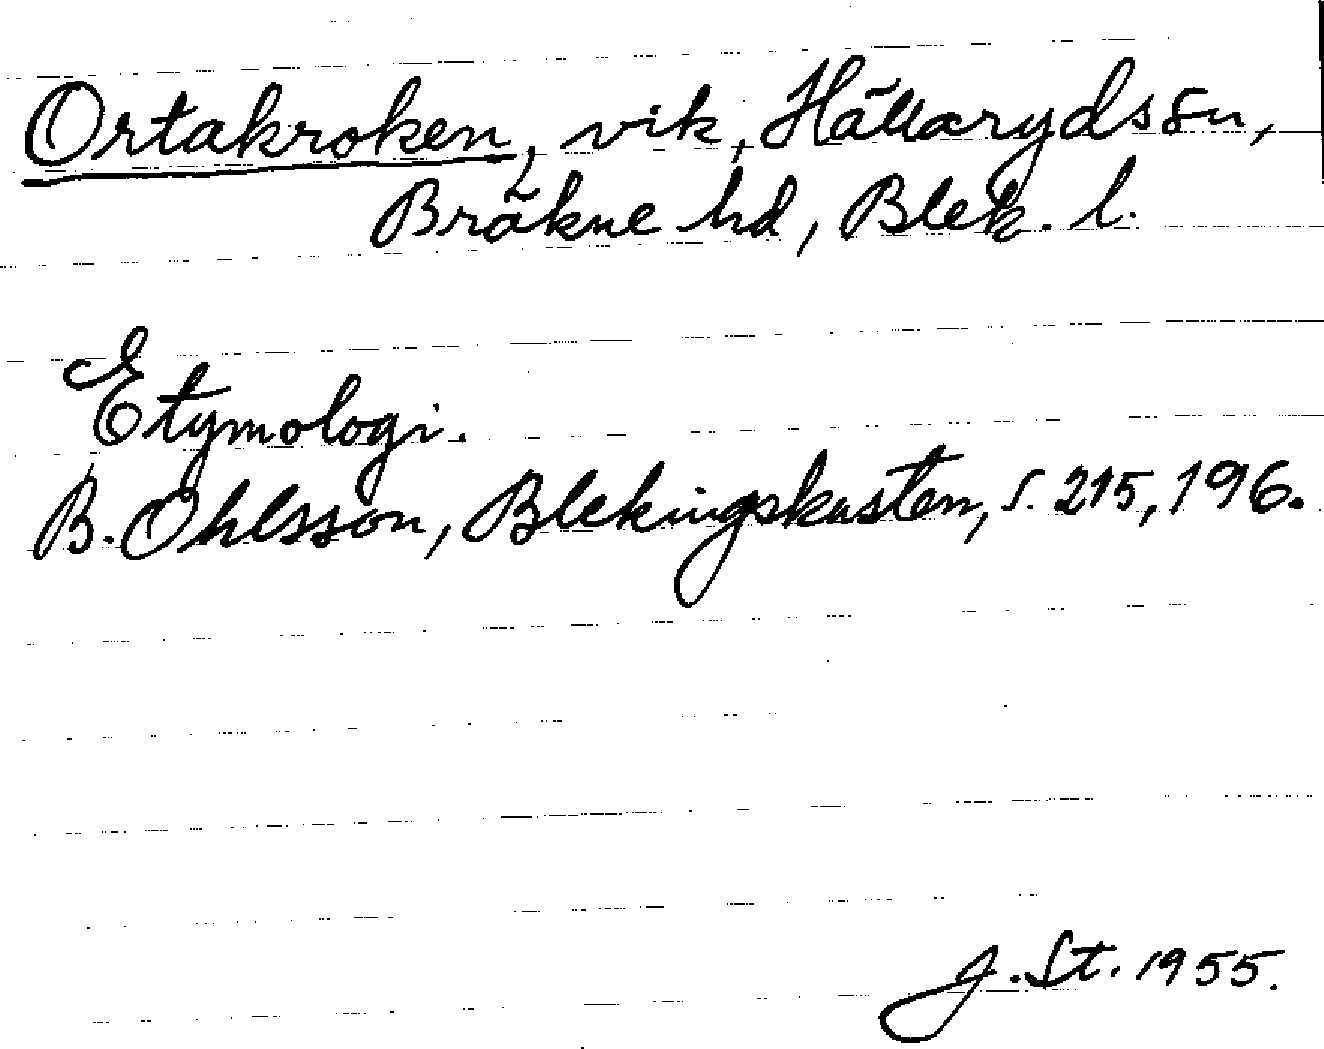 Ortakroken, vik, Hällarydssn,
Bräkne hd, Blek. l.
Etymologi.
B. Ohlsson, Blekingskusten, s. 215, 196.
J. St. 1955.